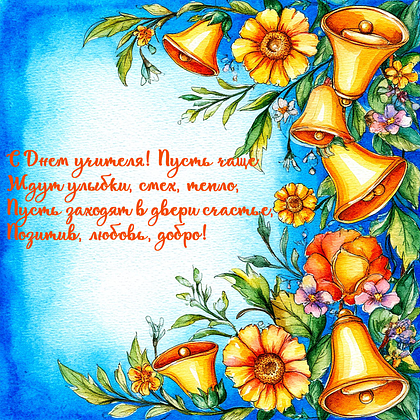 С Днем учителя! Пусть чаще
Ждут улыбки, смех, тепло,
Пусть заходят в двери счастье,
Позитив, любовь, добро!